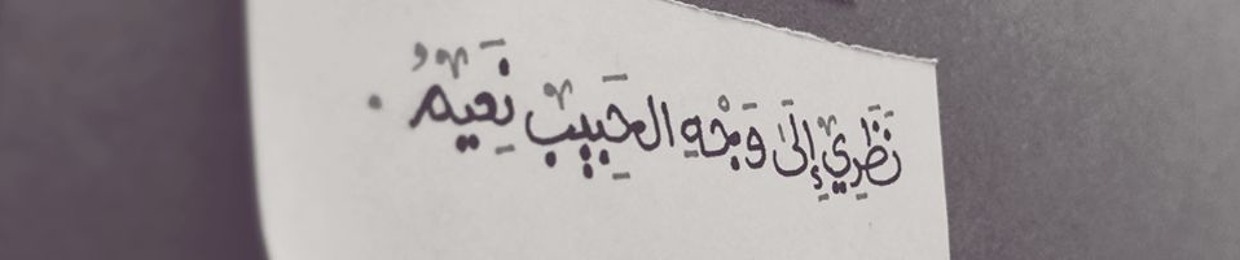 نَظَرِي إِلَى وَجْهِ الحَبِيبِ نَعِيمُ .